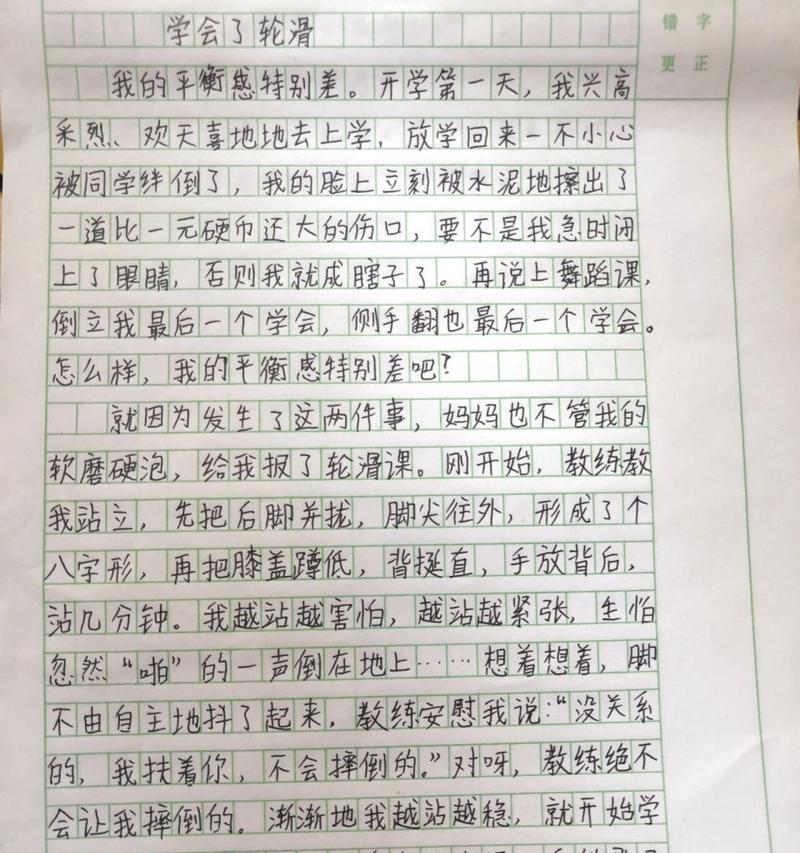 错字
更正
学会了轮滑
我的平衡感特别差。开学第一天，我兴高
采烈、欢天喜地地去上学，放学回来一不小心
被同学绊倒了，我的脸上立刻被水泥地擦出了
一道比一元硬币还大的伤口，要不是我急时闭
上了眼睛，否则我就成瞎子了。再说上舞蹈课，
倒立我最后一个学会，侧手翻也最后一个学会。
怎么样，我的平衡感特别差吧？
就因为发生了这两件事，妈妈也不管我的
软磨硬泡，给我报了轮滑课。刚开始，教练教
我站立，先把后脚并拢，脚尖往外，形成了个
八字形，再把膝盖蹲低，背挺直，手放背后，
站几分钟。我越站越害怕，越站越紧张，生怕
忽然“啪”的一声倒在地上……想着想着，脚
不由自主地抖了起来，教练安慰我说：“没关系
的，我扶着你，不会摔倒的。”对呀，教练绝不
会让我摔倒的。渐渐地我越站越稳，就开始学